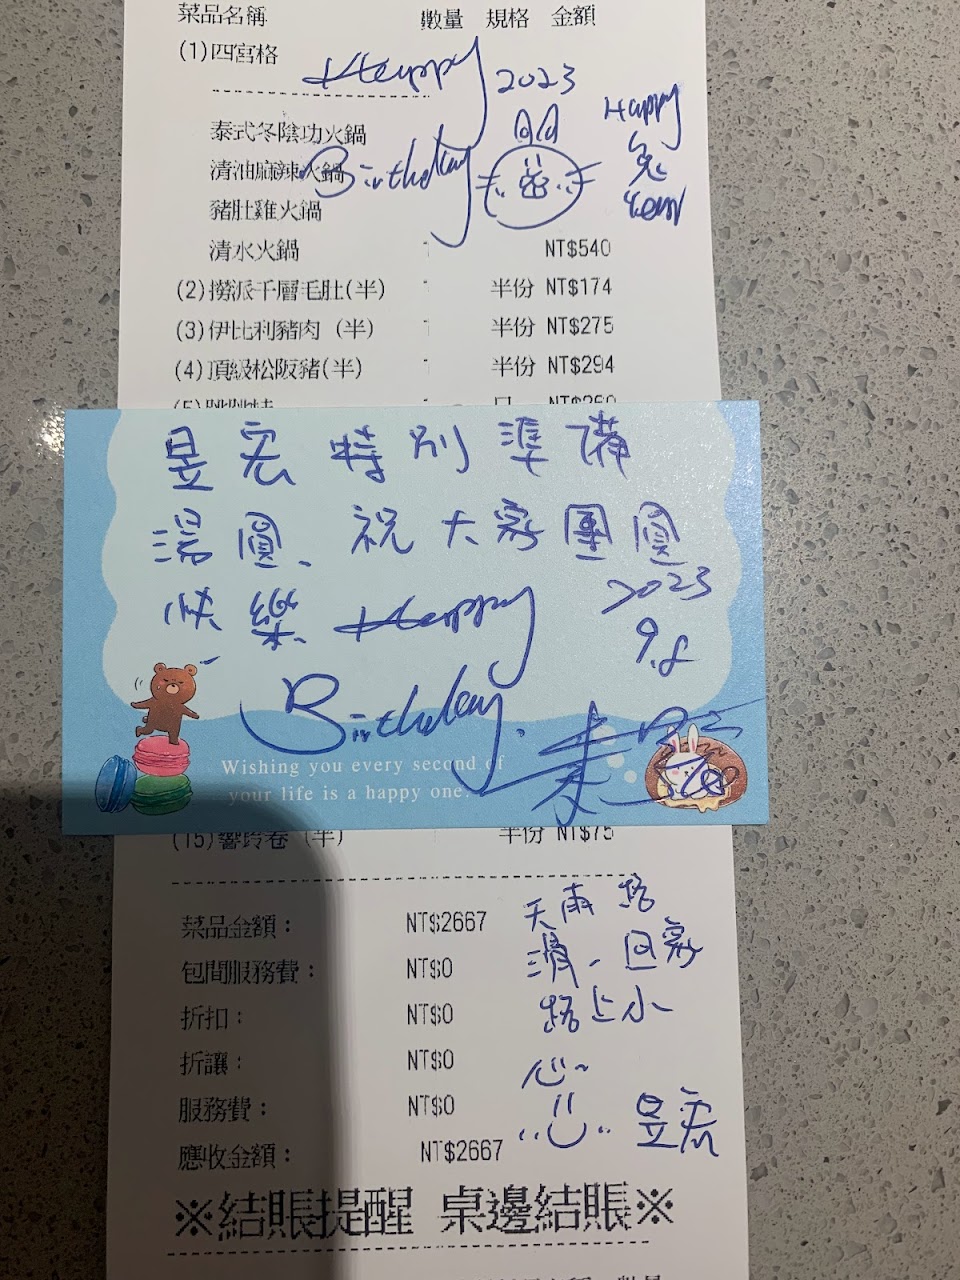 菜品名稱 數量 規格 金額
(1)四宮格
Happy 2023
Happy
兔
Year
泰式冬陰功火鍋
清油麻辣火鍋
Birthday
豬肚雞火鍋
清水火鍋 NT$540
(2)撈派千層毛肚(半) 半份 NT$174
(3)伊比利豬肉 (半) 半份 NT$275
(4)頂級松阪豬(半) 半份 NT$294
昱宏特別準備
湯圓、祝大家團圓
快樂 Happy 2023
9.8
Birthday.
Wishing you every second of
your life is a happy one.
(15)響鈴卷 (半) 半份 NT$75
菜品金額: NT$2667
包間服務費: NT$0
折扣: NT$0
折讓: NT$0
服務費: NT$0
應收金額: NT$2667
天雨路
滑、回家
路上小
心~
昱宏
※結賬提醒 桌邊結賬※